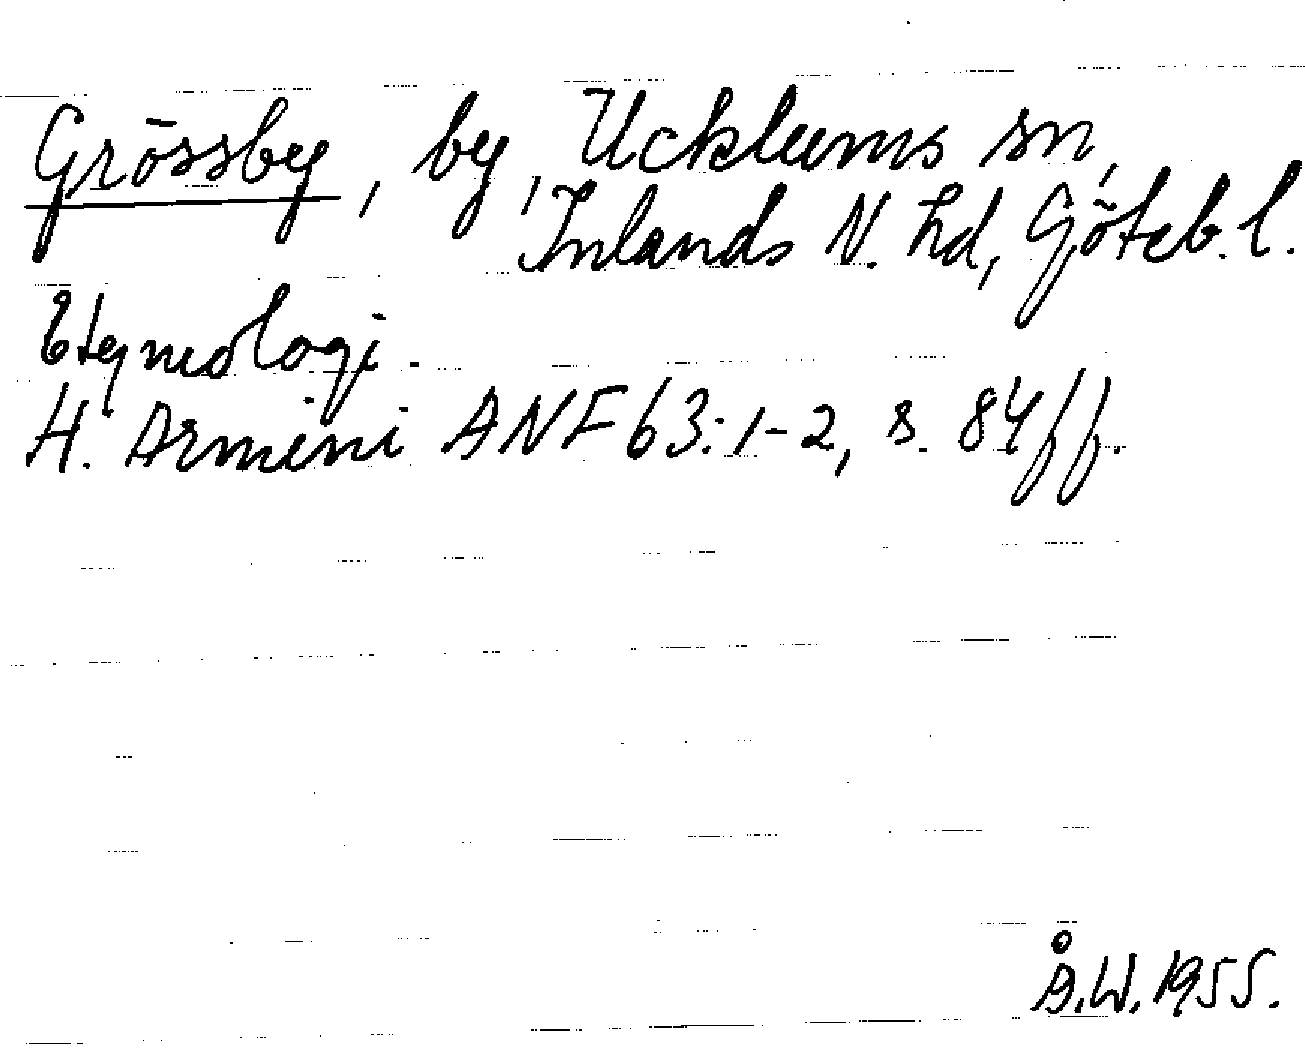 Grössby, by, Ucklums sn,
Inlands N. hd, Göteb. l.
Etymologi.
H. Armini ANF 63:1-2, s. 84ff.
Å.W. 1955.